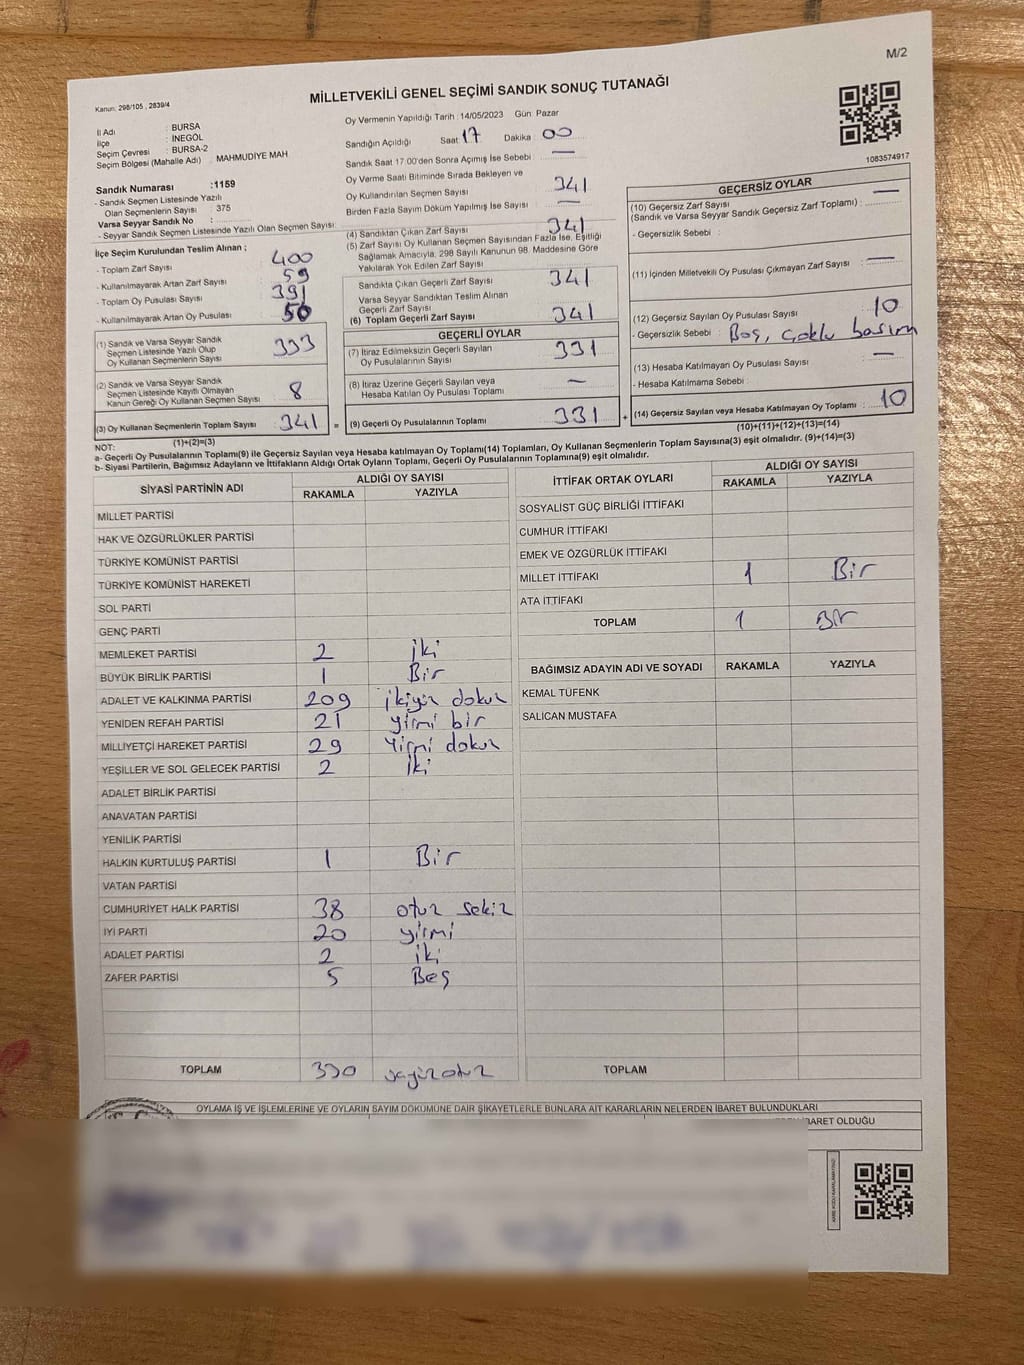 M/2
Kanun: 298/105 , 2839/4
MİLLETVEKİLİ GENEL SEÇİMİ SANDIK SONUÇ TUTANAĞI
İl Adı : BURSA
İlçe : İNEGÖL
Seçim Çevresi : BURSA-2
Seçim Bölgesi (Mahalle Adı) : MAHMUDİYE MAH
Sandık Numarası :1159
- Sandık Seçmen Listesinde Yazılı
Olan Seçmenlerin Sayısı : 375
Varsa Seyyar Sandık No :
- Seyyar Sandık Seçmen Listesinde Yazılı Olan Seçmen Sayısı:
İlçe Seçim Kurulundan Teslim Alınan ;
- Toplam Zarf Sayısı 400
- Kullanılmayarak Artan Zarf Sayısı 59
- Toplam Oy Pusulası Sayısı 391
- Kullanılmayarak Artan Oy Pusulası 50
(1) Sandık ve Varsa Seyyar Sandık
Seçmen Listesinde Yazılı Olup
Oy Kullanan Seçmenlerin Sayısı 333
(2) Sandık ve Varsa Seyyar Sandık
Seçmen Listesinde Kayıtlı Olmayan
Kanun Gereği Oy Kullanan Seçmen Sayısı 8
(3) Oy Kullanan Seçmenlerin Toplam Sayısı 341 =
(1)+(2)=(3)
Oy Vermenin Yapıldığı Tarih : 14/05/2023 Gün: Pazar
Sandığın Açıldığı Saat 17 Dakika : 00
Sandık Saat 17:00'den Sonra Açımış İse Sebebi : —
Oy Verme Saati Bitiminde Sırada Bekleyen ve
Oy Kullandırılan Seçmen Sayısı 341
Birden Fazla Sayım Döküm Yapılmış İse Sayısı : —
(4) Sandıktan Çıkan Zarf Sayısı 341
(5) Zarf Sayısı Oy Kullanan Seçmen Sayısından Fazla İse, Eşitliği
Sağlamak Amacıyla, 298 Sayılı Kanunun 98. Maddesine Göre
Yakılarak Yok Edilen Zarf Sayısı
Sandıkta Çıkan Geçerli Zarf Sayısı 341
Varsa Seyyar Sandıktan Teslim Alınan
Geçerli Zarf Sayısı
(6) Toplam Geçerli Zarf Sayısı 341
GEÇERLİ OYLAR
(7) İtiraz Edilmeksizin Geçerli Sayılan
Oy Pusulalarının Sayısı 331
(8) İtiraz Üzerine Geçerli Sayılan veya
Hesaba Katılan Oy Pusulası Toplamı —
(9) Geçerli Oy Pusulalarının Toplamı 331 +
1083574917
GEÇERSİZ OYLAR
(10) Geçersiz Zarf Sayısı —
(Sandık ve Varsa Seyyar Sandık Geçersiz Zarf Toplamı) :
- Geçersizlik Sebebi :
(11) İçinden Milletvekili Oy Pusulası Çıkmayan Zarf Sayısı : —
(12) Geçersiz Sayılan Oy Pusulası Sayısı 10
- Geçersizlik Sebebi : Boş, çoklu basım
(13) Hesaba Katılmayan Oy Pusulası Sayısı : —
- Hesaba Katılmama Sebebi :
(14) Geçersiz Sayılan veya Hesaba Katılmayan Oy Toplamı : 10
(10)+(11)+(12)+(13)=(14)
NOT:
a- Geçerli Oy Pusulalarının Toplamı(9) ile Geçersiz Sayılan veya Hesaba katılmayan Oy Toplamı(14) Toplamları, Oy Kullanan Seçmenlerin Toplam Sayısına(3) eşit olmalıdır. (9)+(14)=(3)
b- Siyasi Partilerin, Bağımsız Adayların ve İttifakların Aldığı Ortak Oyların Toplamı, Geçerli Oy Pusulalarının Toplamına(9) eşit olmalıdır.
SİYASİ PARTİNİN ADI ALDIĞI OY SAYISI
RAKAMLA YAZIYLA
MİLLET PARTİSİ
HAK VE ÖZGÜRLÜKLER PARTİSİ
TÜRKİYE KOMÜNİST PARTİSİ
TÜRKİYE KOMÜNİST HAREKETİ
SOL PARTİ
GENÇ PARTİ
MEMLEKET PARTİSİ 2 iki
BÜYÜK BİRLİK PARTİSİ 1 Bir
ADALET VE KALKINMA PARTİSİ 209 ikiyüz dokuz
YENİDEN REFAH PARTİSİ 21 yirmi bir
MİLLİYETÇİ HAREKET PARTİSİ 29 Yirmi dokuz
YEŞİLLER VE SOL GELECEK PARTİSİ 2 iki
ADALET BİRLİK PARTİSİ
ANAVATAN PARTİSİ
YENİLİK PARTİSİ
HALKIN KURTULUŞ PARTİSİ 1 Bir
VATAN PARTİSİ
CUMHURİYET HALK PARTİSİ 38 otuz sekiz
İYİ PARTİ 20 yirmi
ADALET PARTİSİ 2 iki
ZAFER PARTİSİ 5 Beş
TOPLAM 330
İTTİFAK ORTAK OYLARI ALDIĞI OY SAYISI
RAKAMLA YAZIYLA
SOSYALİST GÜÇ BİRLİĞİ İTTİFAKI
CUMHUR İTTİFAKI
EMEK VE ÖZGÜRLÜK İTTİFAKI
MİLLET İTTİFAKI 1 Bir
ATA İTTİFAKI
TOPLAM 1 Bir
BAĞIMSIZ ADAYIN ADI VE SOYADI RAKAMLA YAZIYLA
KEMAL TÜFENK
SALİCAN MUSTAFA
TOPLAM
OYLAMA İŞ VE İŞLEMLERİNE VE OYLARIN SAYIM DÖKÜMÜNE DAİR ŞİKAYETLERLE BUNLARA AİT KARARLARIN NELERDEN İBARET BULUNDUKLARI
İBARET OLDUĞU